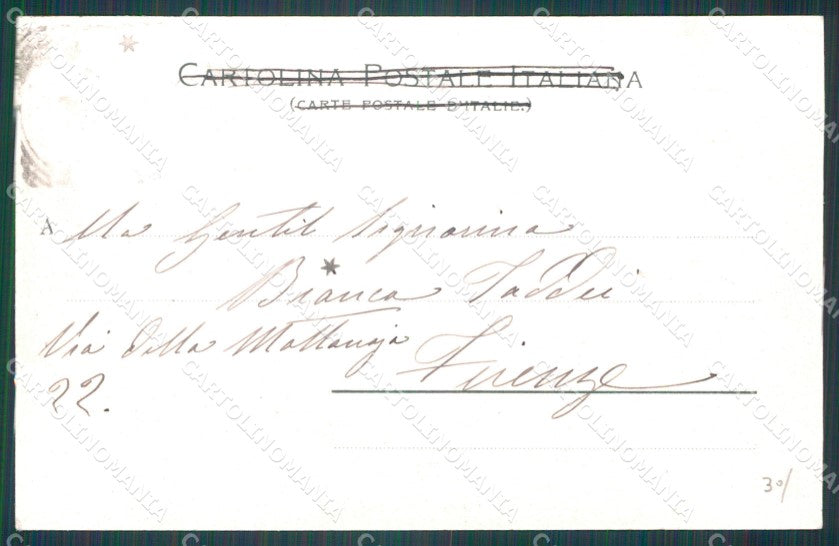 CARTOLINA POSTALE ITALIANA
(CARTE POSTALE D'ITALIE.)
Alla Gentil Signorina
Bianca Taddei
Via della Mattonaja
Firenze
22.
30/
CARTOLINOMANIA